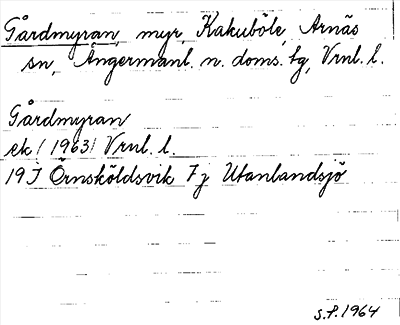 Gårdmyran, myr, Kakuböle, Arnäs
sn, Ångermanl. n. doms. tg, Vrnl. l.
Gårdmyran
ek (1963) Vrnl. l.
19J Örnsköldsvik 7j Utanlandsjö
S.P. 1964